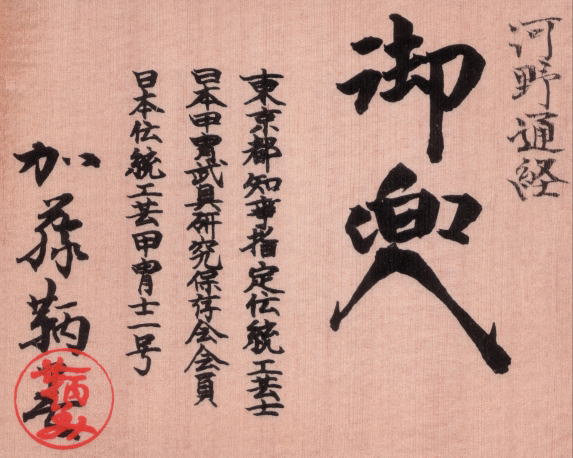 河野通経
御兜
東京都知事指定伝統工芸士
日本甲冑武具研究保存会会員
日本伝統工芸甲冑士一号
加藤鞆美
鞆美